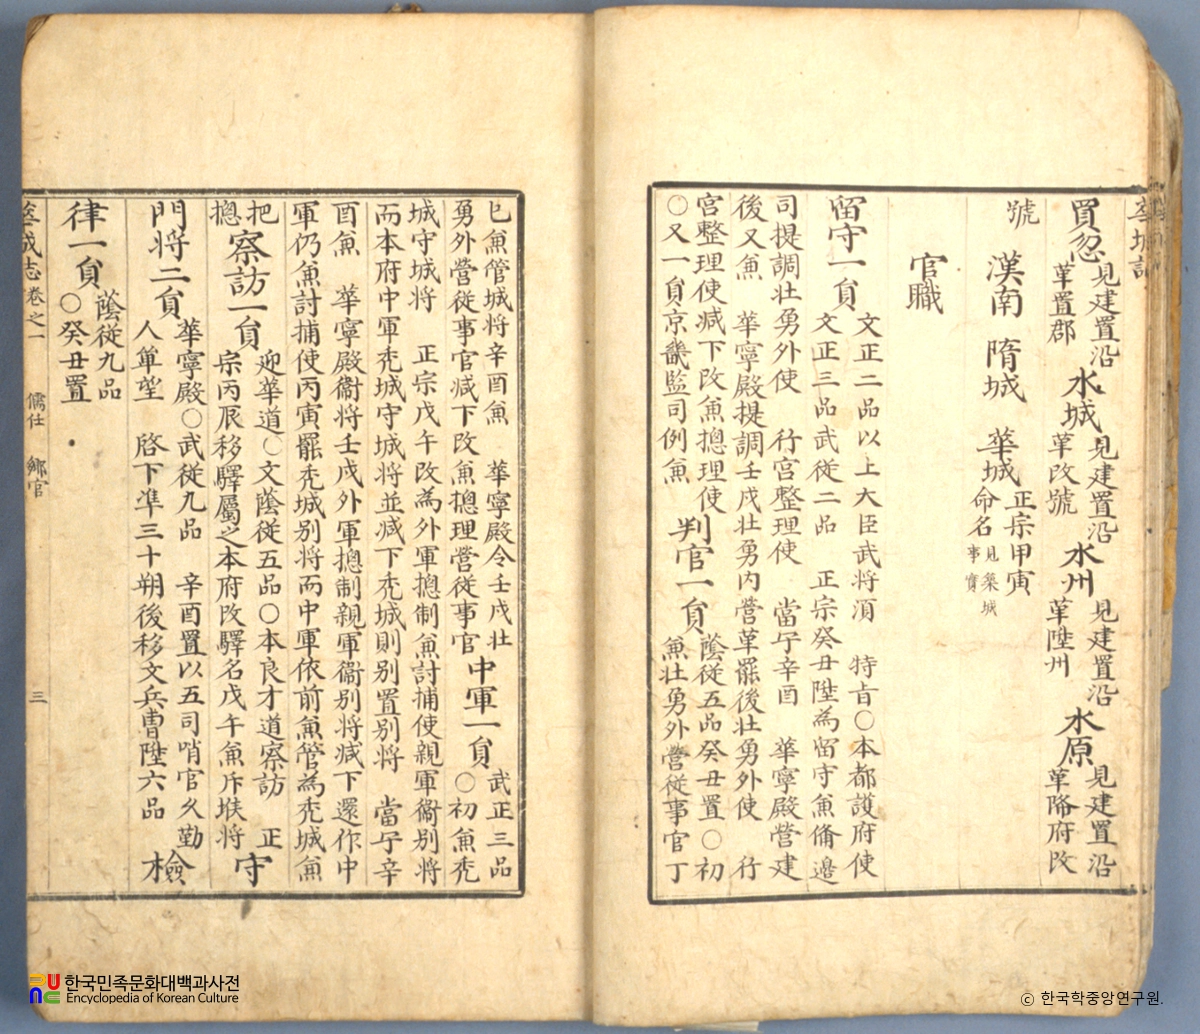 買忽 見建置沿
革置郡 水城 見建置沿
革改號 水州 見建置沿
革陞州 水原 見建置沿
革降府改
號 漢南 隋城 華城 正宗甲寅
命名 見築城
事實
官職
留守一員 文正二品以上大臣武將湏 特旨○本都護府使
文正三品武從二品 正宗癸丑陞為留守兼備邊
司提調壯勇外使 行宮整理使 當宁辛酉 華寧殿營建
後又兼 華寧殿提調壬戌壯勇內營革罷後壯勇外使 行
宮整理使减下改兼摠理使
○又一員京畿監司例兼 判官一員 蔭從五品癸丑置○初
兼壯勇外營從事官丁
巳兼管城將辛酉兼 華寧殿令壬戌壯
勇外營從事官减下改兼摠理營從事官 中軍一員 武正三品
○初兼禿
城守城將 正宗戊午改為外軍摠制兼討捕使親軍衛別將
而本府中軍禿城守城將並减下禿城則別置別將 當宁辛
酉兼 華寧殿衛將壬戌外軍摠制親軍衛別將减下還作中
軍仍兼討捕使丙寅罷禿城別將而中軍依前兼管為禿城兼
把
摠 察訪一員 迎華道○文蔭從五品○本良才道察訪 正
宗丙辰移驛屬之本府改驛名戊午兼斥堠將 守
門將二員 華寧殿○武從九品 辛酉置以五司哨官久勤
人單望 啓下準三十朔後移文兵曹陞六品 檢
律一員 蔭從九品
○癸丑置
華城志卷之一 儒仕 鄉官 三
한국민족문화대백과사전
Encyclopedia of Korean Culture
ⓒ 한국학중앙연구원.